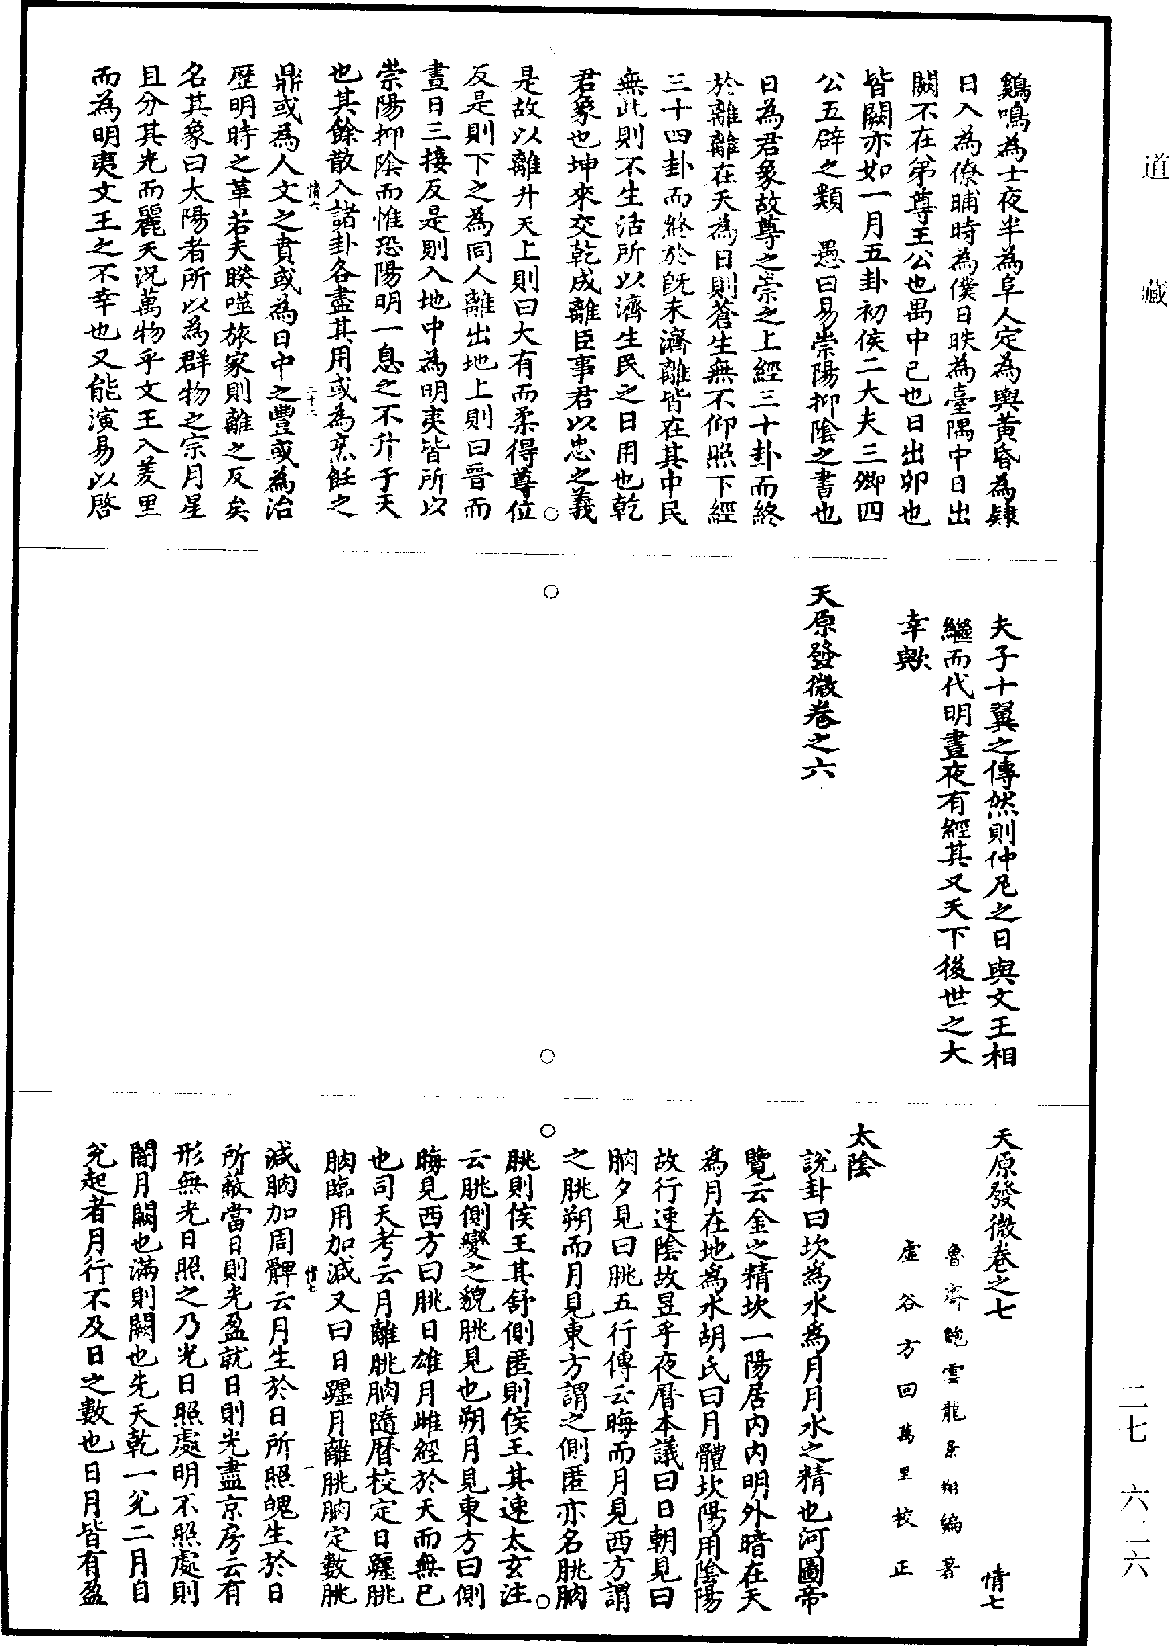 道藏
鷄鳴為士夜半為阜人定為輿黃昏為隸
日入為僚晡時為僕日昳為臺隅中日出
闕不在第尊王公也禺中巳也日出卯也
皆闕亦如一月五卦初侯二大夫三卿四
公五辟之類　愚曰易崇陽抑陰之書也
日為君象故尊之崇之上經三十卦而終
於離離在天為日則蒼生無不仰照下經
三十四卦而終於旣未濟離皆在其中民
無此則不生活所以濟生民之日用也乾
君象也坤來交乾成離臣事君以忠之義
是故以離升天上則曰大有而柔得尊位
反是則下之為同人離出地上則曰晉而
晝日三接反是則入地中為明夷皆所以
崇陽抑陰而惟恐陽明一息之不升于天
也其餘散入諸卦各盡其用或為烹飪之
情六
二十二
鼎或為人文之賁或為日中之豐或為治
歷明時之革若夫睽噬旅家則離之反矣
名其象曰太陽者所以為群物之宗月星
且分其光而麗天況萬物乎文王入羑里
而為明夷文王之不幸也又能演易以啓
夫子十翼之傳然則仲尼之日與文王相
繼而代明晝夜有經其又天下後世之大
幸歟
天原發微卷之六
天原發微卷之七
情七
魯齋鮑雲龍景翔編著
虛谷方回萬里校正
太陰
說卦曰坎為水為月月水之精也河圖帝
覽云金之精坎一陽居內內明外暗在天
為月在地為水胡氏曰月體坎陽用陰陽
故行速陰故昱乎夜曆本議曰日朝見曰
朒夕見曰朓五行傳云晦而月見西方謂
之朓朔而月見東方謂之側匿亦名朓朒
朓則侯王其舒側匿則侯王其速太玄注
云朓側變之貌朓見也朔月見東方曰側
晦見西方曰朓日雄月雌經於天而無已
也司天考云月離朓朒隨曆校定日躔朓
朒臨用加減又曰日躔月離朓朒定數朓
情七
一
減朒加周髀云月生於日所照魄生於日
所蔽當日則光盈就日則光盡京房云有
形無光日照之乃光日照處明不照處則
闇月闕也滿則闕也先天乾一兊二月自
兊起者月行不及日之數也日月皆有盈
二七　六二六